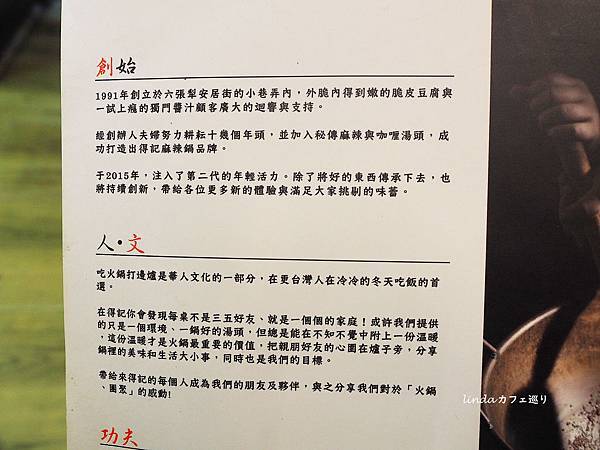 創始
1991年創立於六張犁安居街的小巷弄內，外脆內得到嫩的脆皮豆腐與
一試上癮的獨門醬汁顧客廣大的迴響與支持。
經創辦人夫婦努力耕耘十幾個年頭，並加入秘傳麻辣與咖哩湯頭，成
功打造出得記麻辣鍋品牌。
于2015年，注入了第二代的年輕活力。除了將好的東西傳承下去，也
將持續創新，帶給各位更多新的體驗與滿足大家挑剔的味蕾。
人·文
吃火鍋打邊爐是華人文化的一部分，在更台灣人在冷冷的冬天吃飯的首
選。
在得記你會發現每桌不是三五好友、就是一個個的家庭！或許我們提供
的只是一個環境、一鍋好的湯頭，但總是能在不知不覺中附上一份溫暖
，這份溫暖才是火鍋最重要的價值，把親朋好友的心圍在爐子旁，分享
鍋裡的美味和生活大小事，同時也是我們的目標。
帶給來得記的每個人成為我們的朋友及夥伴，與之分享我們對於「火鍋
、團聚」的感動!
功夫
lindaカフェ巡り